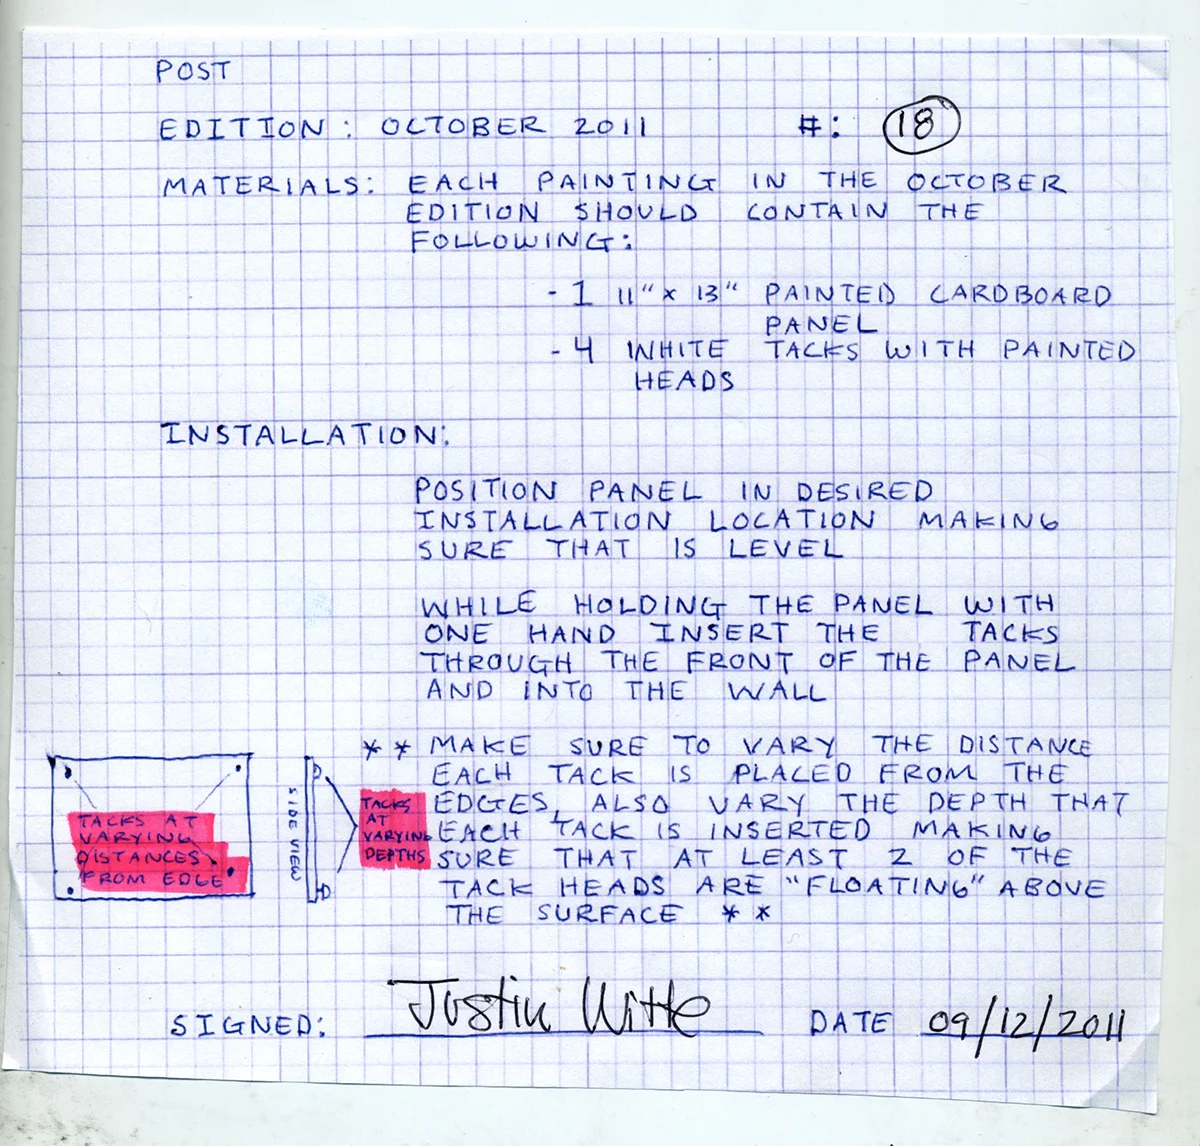 POST
EDITION: OCTOBER 2011 #: 18
MATERIALS: EACH PAINTING IN THE OCTOBER
EDITION SHOULD CONTAIN THE
FOLLOWING:
- 1 11" x 13" PAINTED CARDBOARD
PANEL
- 4 WHITE TACKS WITH PAINTED
HEADS
INSTALLATION:
POSITION PANEL IN DESIRED
INSTALLATION LOCATION MAKING
SURE THAT IS LEVEL
WHILE HOLDING THE PANEL WITH
ONE HAND INSERT THE TACKS
THROUGH THE FRONT OF THE PANEL
AND INTO THE WALL
** MAKE SURE TO VARY THE DISTANCE
EACH TACK IS PLACED FROM THE
EDGES, ALSO VARY THE DEPTH THAT
EACH TACK IS INSERTED MAKING
SURE THAT AT LEAST 2 OF THE
TACK HEADS ARE "FLOATING" ABOVE
THE SURFACE **
TACKS AT
VARYING
DISTANCES
FROM EDGE
SIDE VIEW
TACKS
AT
VARYING
DEPTHS
SIGNED: Justin Witte DATE 09/12/2011